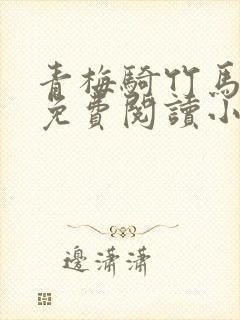 青梅騎竹馬
免費閱讀小
邊瀟瀟